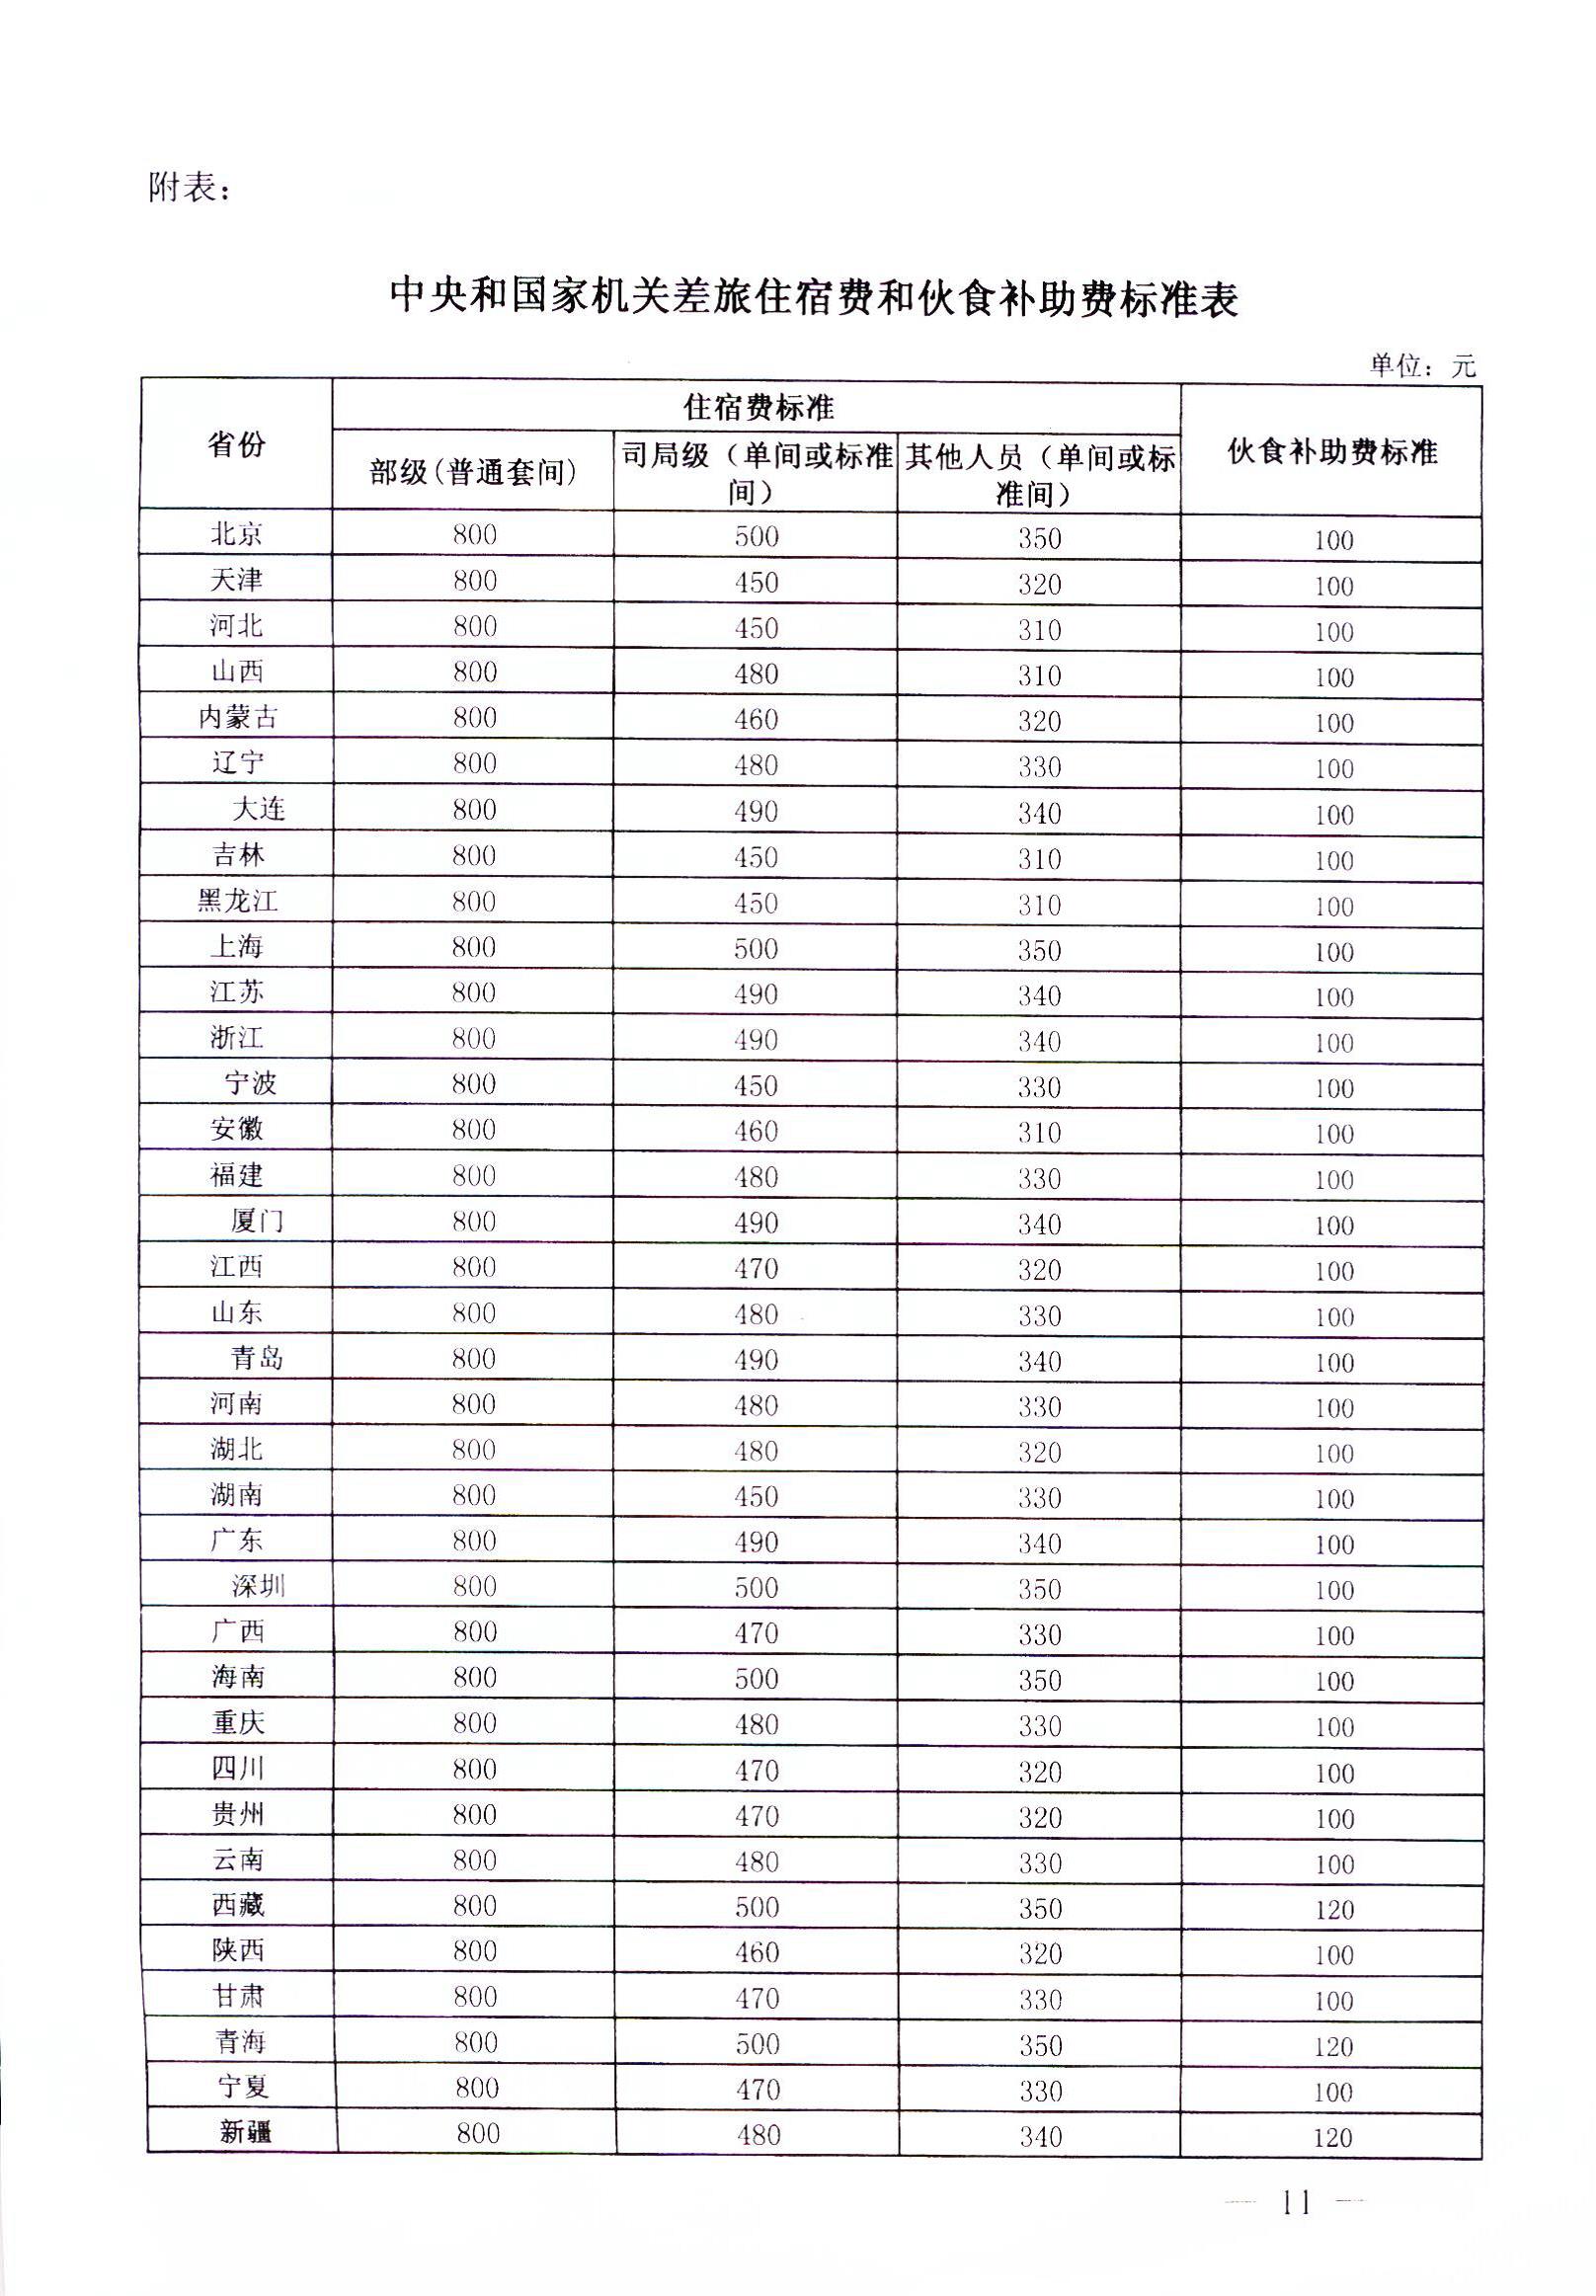 附表：
中央和国家机关差旅住宿费和伙食补助费标准表
单位：元
省份 住宿费标准 伙食补助费标准
部级(普通套间) 司局级（单间或标准间） 其他人员（单间或标准间）
北京 800 500 350 100
天津 800 450 320 100
河北 800 450 310 100
山西 800 480 310 100
内蒙古 800 460 320 100
辽宁 800 480 330 100
大连 800 490 340 100
吉林 800 450 310 100
黑龙江 800 450 310 100
上海 800 500 350 100
江苏 800 490 340 100
浙江 800 490 340 100
宁波 800 450 330 100
安徽 800 460 310 100
福建 800 480 330 100
厦门 800 490 340 100
江西 800 470 320 100
山东 800 480 330 100
青岛 800 490 340 100
河南 800 480 330 100
湖北 800 480 320 100
湖南 800 450 330 100
广东 800 490 340 100
深圳 800 500 350 100
广西 800 470 330 100
海南 800 500 350 100
重庆 800 480 330 100
四川 800 470 320 100
贵州 800 470 320 100
云南 800 480 330 100
西藏 800 500 350 120
陕西 800 460 320 100
甘肃 800 470 330 100
青海 800 500 350 120
宁夏 800 470 330 100
新疆 800 480 340 120
— 11 —